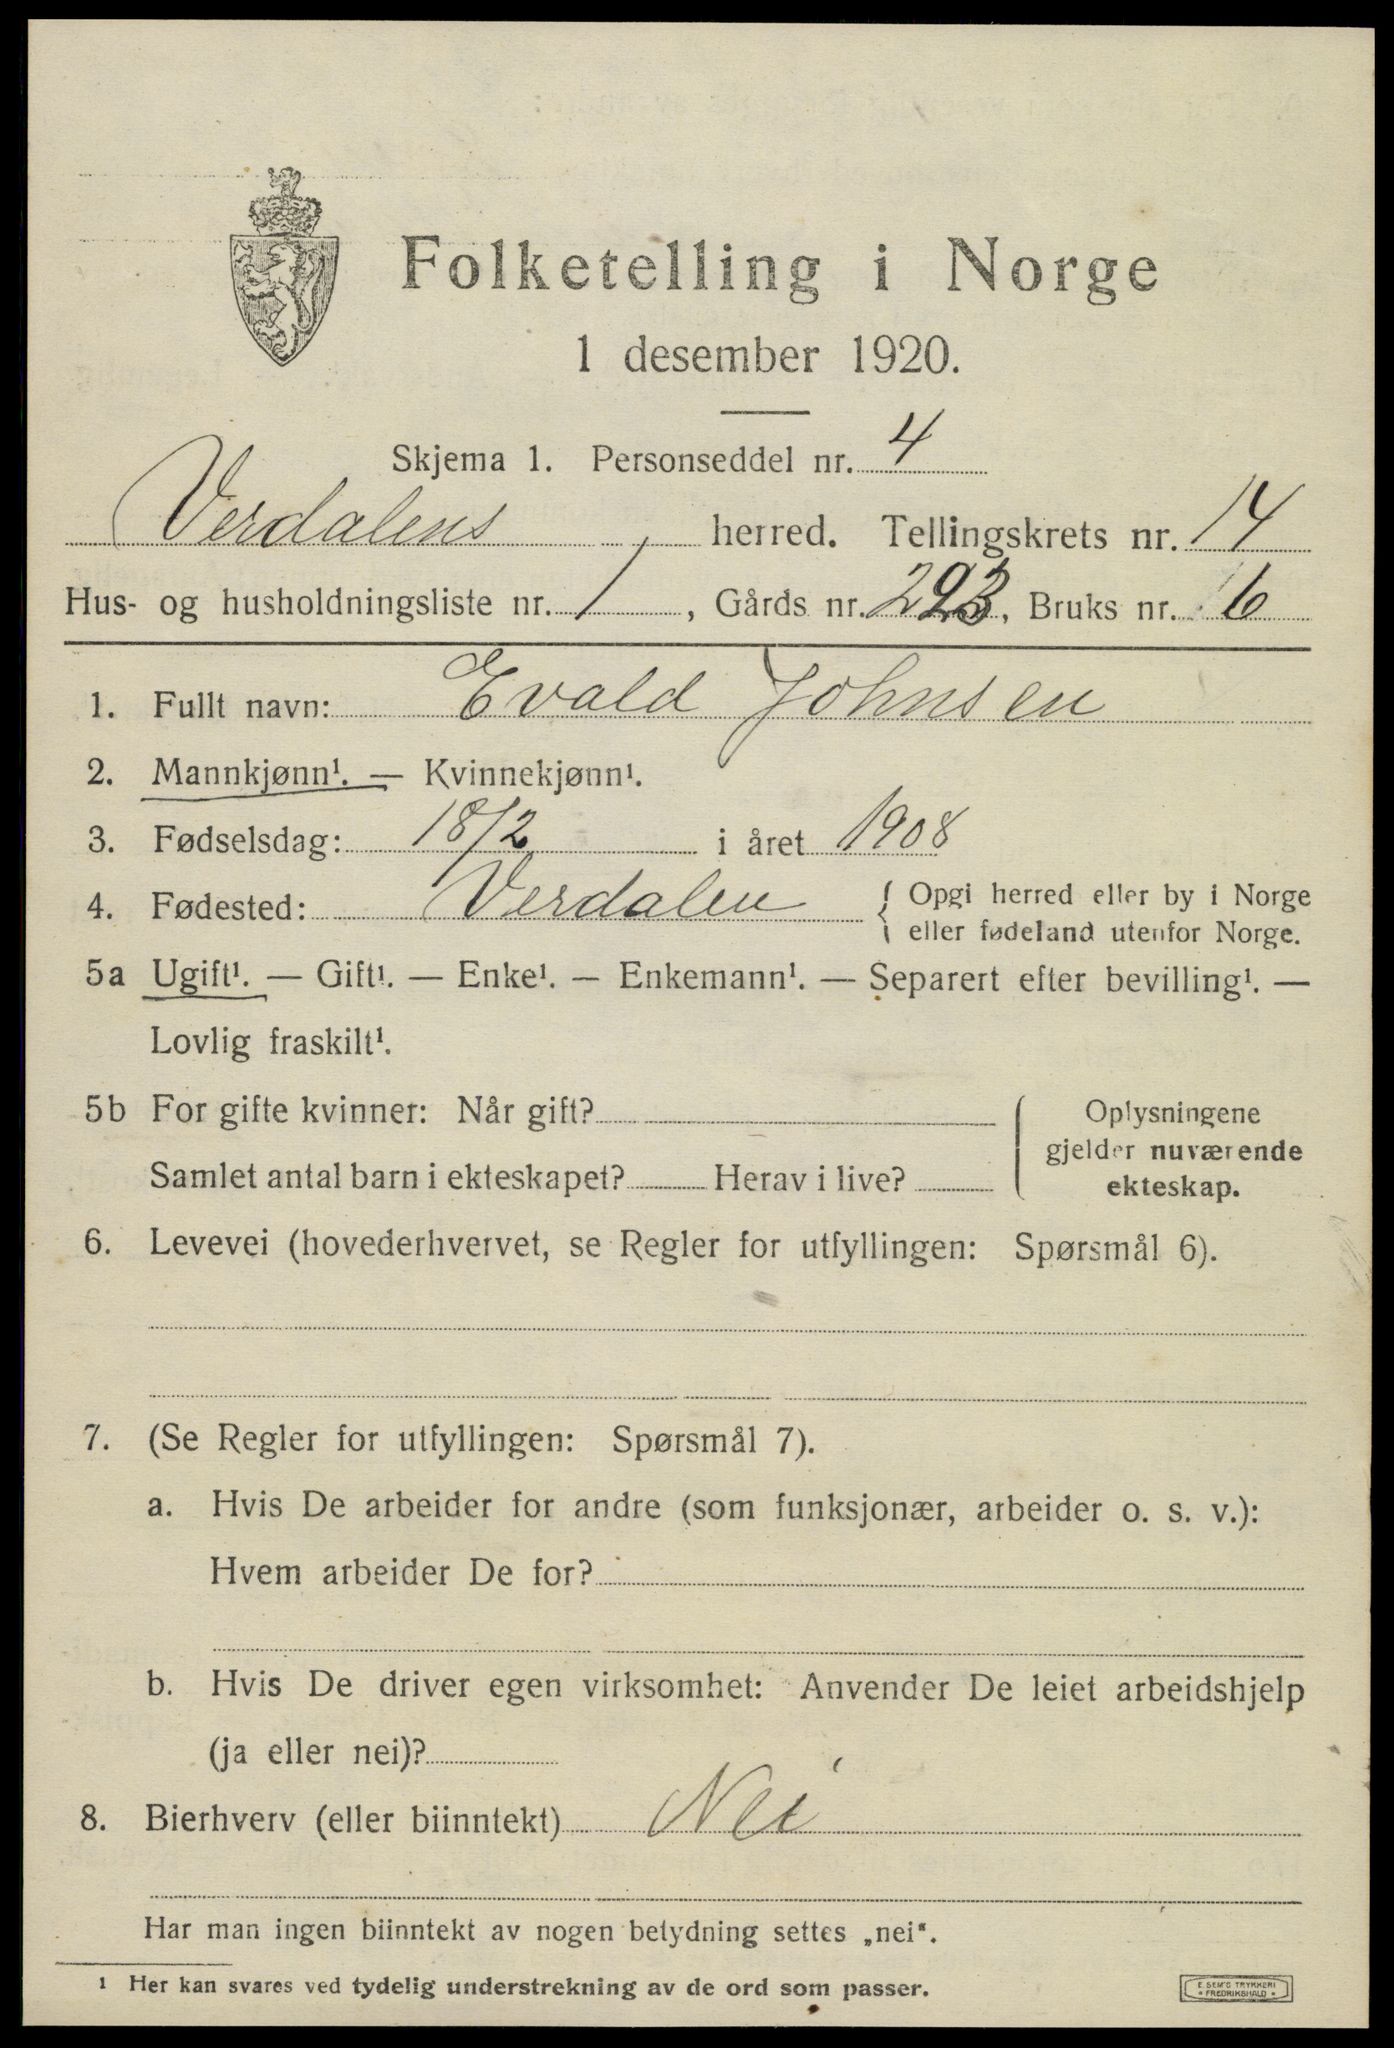 Folketelling i Norge
1 desember 1920.
Skjema 1. Personseddel nr. 4
Verdalens herred. Tellingskrets nr. 14
Hus- og husholdningsliste nr. 1, Gårds nr. 293, Bruks nr. 6
1. Fullt navn: Evald Johnsen
2. Mannkjønn¹. — Kvinnekjønn¹.
3. Fødselsdag: 18/2 i året 1908
4. Fødested: Verdalen { Opgi herred eller by i Norge
eller fødeland utenfor Norge.
5a Ugift¹. — Gift¹. — Enke¹. — Enkemann¹. — Separert efter bevilling¹. —
Lovlig fraskilt¹.
5b For gifte kvinner: Når gift?
Samlet antal barn i ekteskapet? Herav i live?
Oplysningene
gjelder nuværende
ekteskap.
6. Levevei (hovederhvervet, se Regler for utfyllingen: Spørsmål 6).
7. (Se Regler for utfyllingen: Spørsmål 7).
a. Hvis De arbeider for andre (som funksjonær, arbeider o. s. v.):
Hvem arbeider De for?
b. Hvis De driver egen virksomhet: Anvender De leiet arbeidshjelp
(ja eller nei)?
8. Bierhverv (eller biinntekt) Nei
Har man ingen biinntekt av nogen betydning settes „nei".
¹ Her kan svares ved tydelig understrekning av de ord som passer.
E. SEM'S TRYKKERI
FREDRIKSHALD